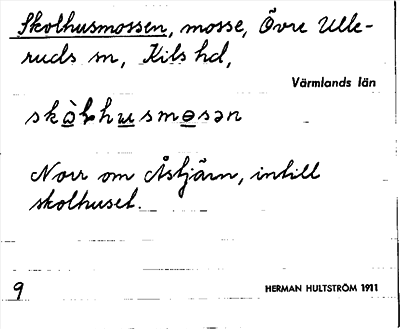 Skolhusmossen, mosse, Övre Ulle-
ruds sn, Kils hd,
Värmlands län
skòlhusmosən
Norr om Åstjärn, intill
skolhuset.
9 HERMAN HULTSTRÖM 1911